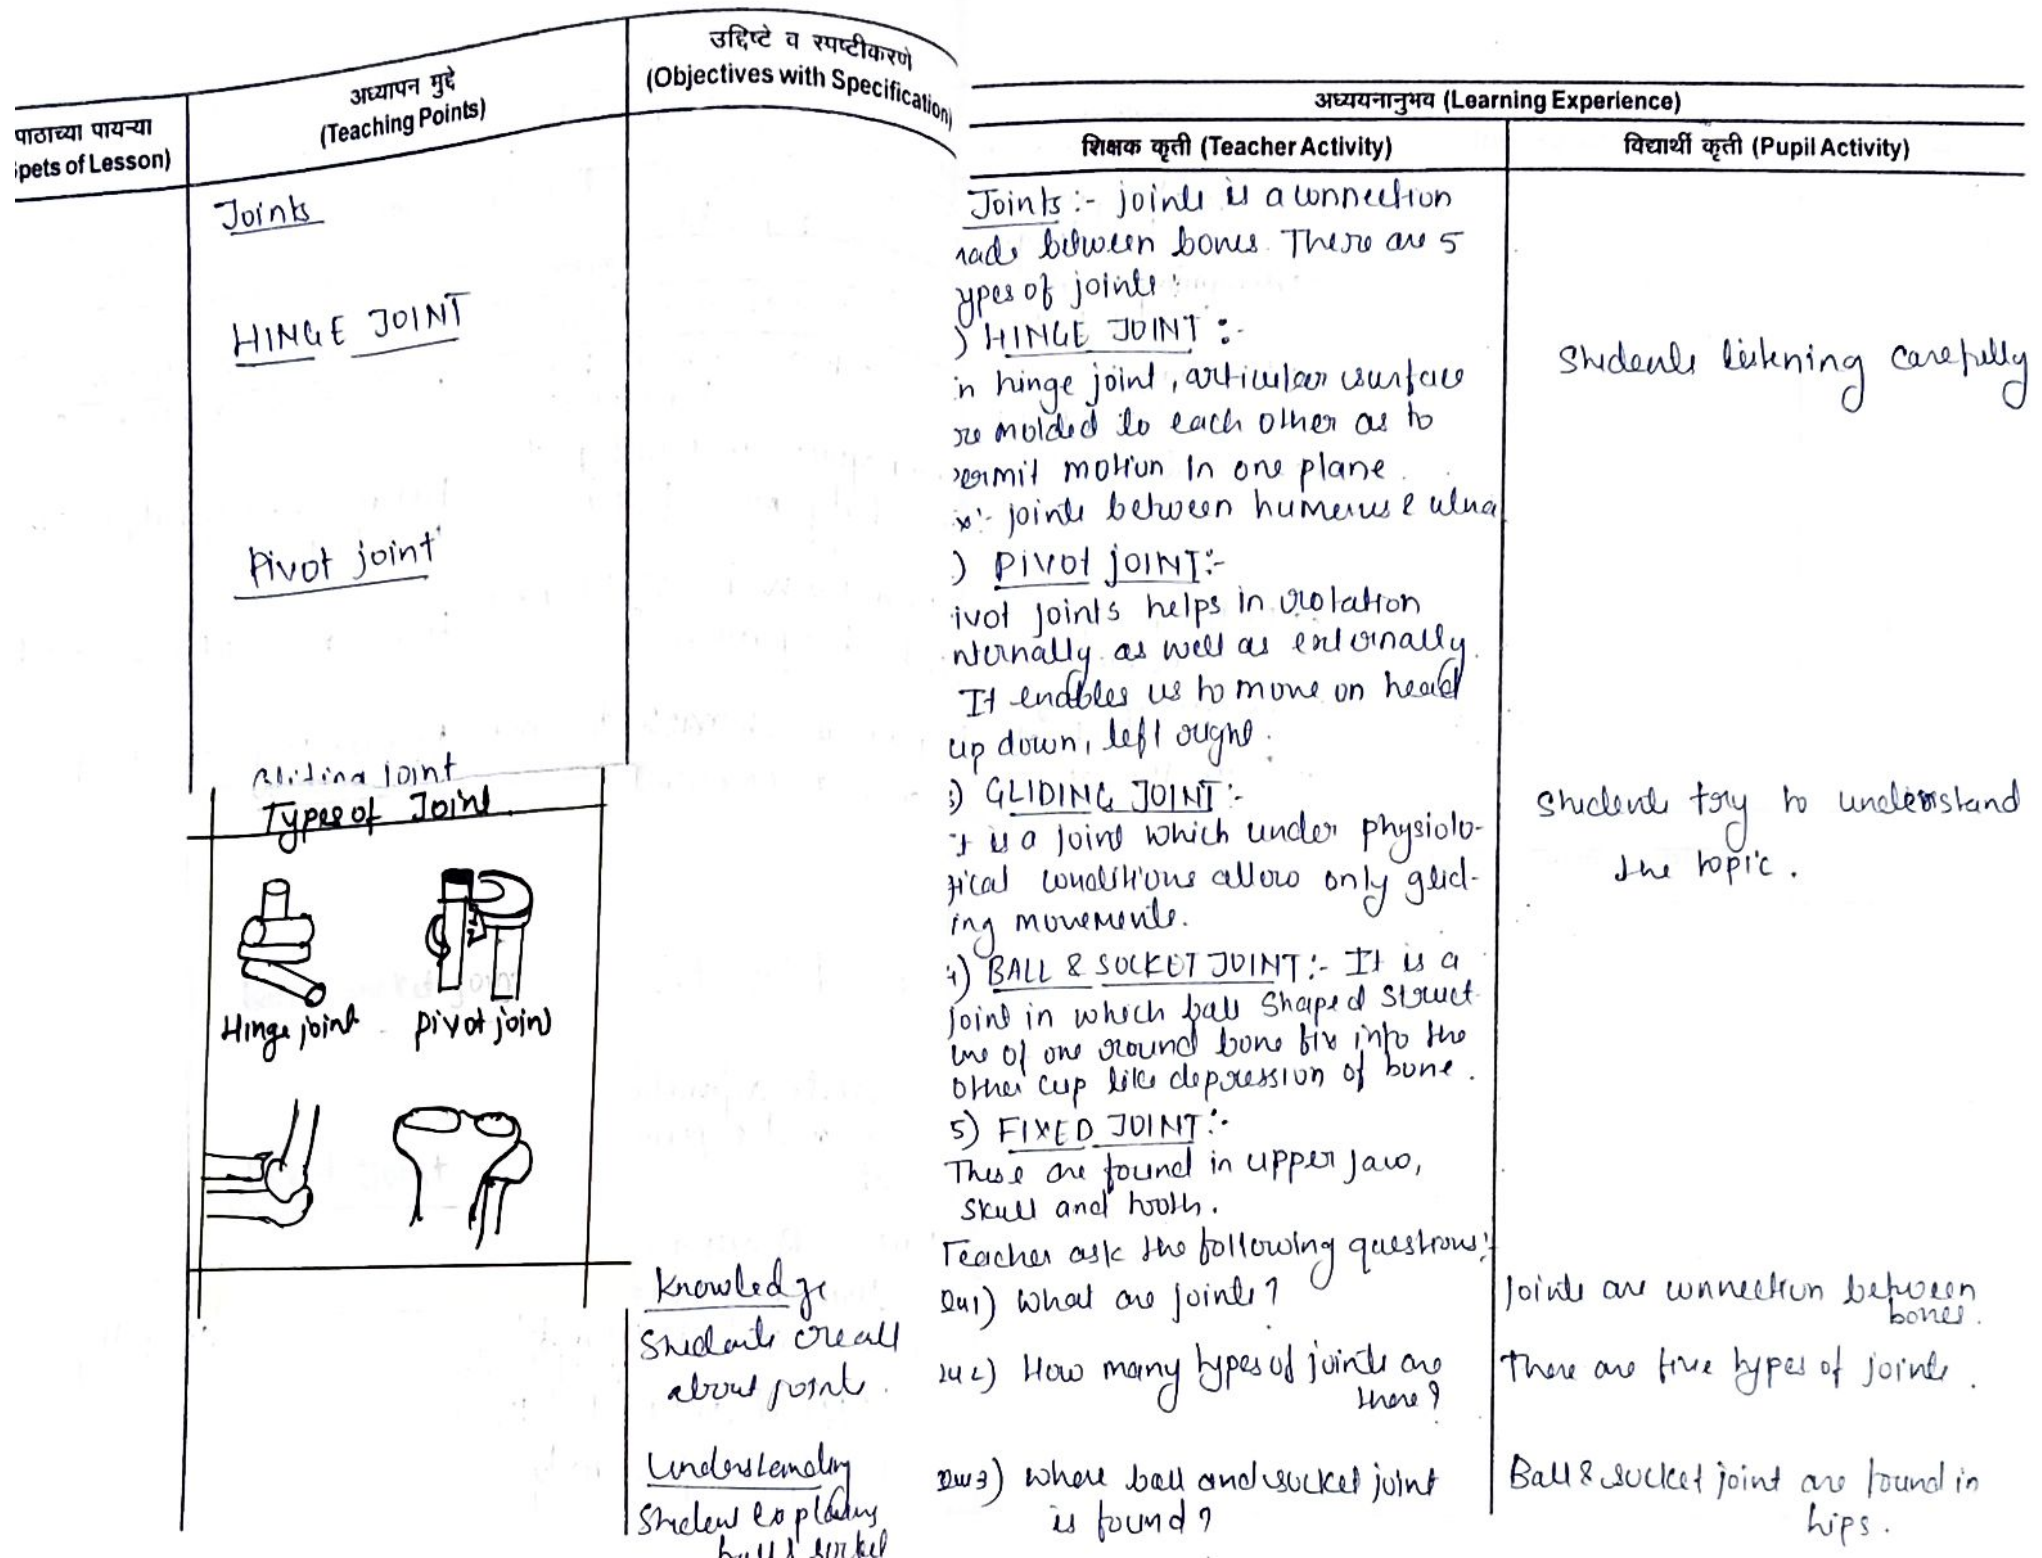 पाठाच्या पायऱ्या
pets of Lesson)
अध्यापन मुद्दे
(Teaching Points)
उद्दिष्टे व स्पष्टीकरणे
(Objectives with Specification)
अध्ययनानुभव (Learning Experience)
शिक्षक कृती (Teacher Activity)
विद्यार्थी कृती (Pupil Activity)
Joints
HINGE JOINT
Pivot joint
Gliding joint
Types of Joint
Hinge joint
pivot joint
Knowledge
Students recall
about joints.
Understanding
Student explains
ball & socket
Joints :- joints is a connection
made between bones. There are 5
ypes of joints :
) HINGE JOINT :-
n hinge joint, articular surface
re molded to each other as to
permit motion In one plane.
ex:- joints between humerus & ulna
) PIVOT JOINT:-
ivot joints helps in rotation
nternally as well as externally.
It enables us to move on head
up down, left right.
3) GLIDING JOINT :-
It is a joint which under physiolo-
gical conditions allow only glid-
ing movements.
4) BALL & SOCKET JOINT :- It is a
joint in which ball shaped struct
ure of one round bone fix into the
other cup like depression of bone.
5) FIXED JOINT :-
These are found in upper jaw,
skull and tooth.
Teacher ask the following questions:
Qu1) What are joints?
Qu2) How many types of joints are
there?
Qu3) Where ball and socket joint
is found?
Students listening carefully
Students try to understand
the topic.
Joints are connection between
bones.
There are five types of joints.
Ball & socket joint are found in
hips.